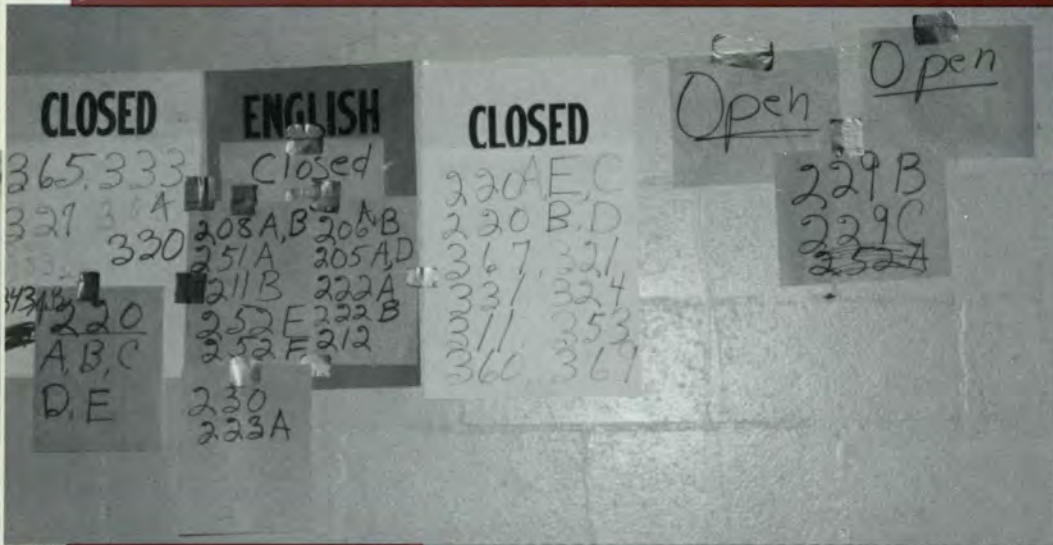 CLOSED
365, 333
327
A
330
220
A, B, C
D, E
ENGLISH
Closed
208A,B 206A,B
251A 205A,D
211B 222A
252E 222B
252F 212
230
223A
CLOSED
220A,E,C
220B,D
367, 321
331, 324
311, 353
360, 369
Open
Open
229B
229C
252A